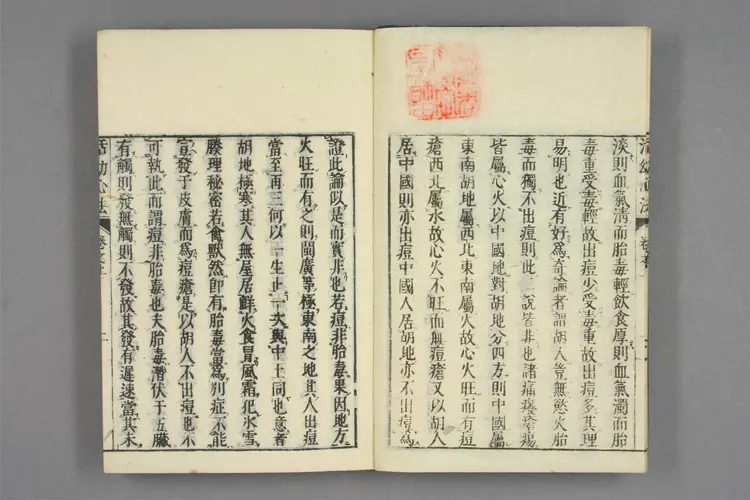 淡則血氣清而胎毒輕飲食厚則血氣濁而胎
毒重受毒輕故出痘少受毒重故出痘多其理
易明也近有好爲奇論者謂胡人豈無慾火胎
毒而獨不出痘則此一說皆非也諸痛癢瘡瘍
皆屬心火以中國地對胡地分四方則中國屬
東南胡地屬西北東南屬火故心火旺而有痘
瘡西北屬水故心火不旺而無痘瘡又以胡人
居中國則亦出痘中國人居胡地亦不出痘爲
證此論似是而實非也若痘非胎毒果因地方
火旺而有之則閩廣等極東南之地其人出痘
當至再三何以一生止一次與中土同也意者
胡地極寒其人無屋居鮮火食冒風霜犯氷雪
腠理秘密若禽獸然卽有胎毒當爲別症不能
宣發于皮膚而爲痘瘡是以胡人不出痘也不
可執此而謂痘非胎毒也夫胎毒潛伏于五臟
有觸則發無觸則不發故其發有遲速當其未
活幼心法